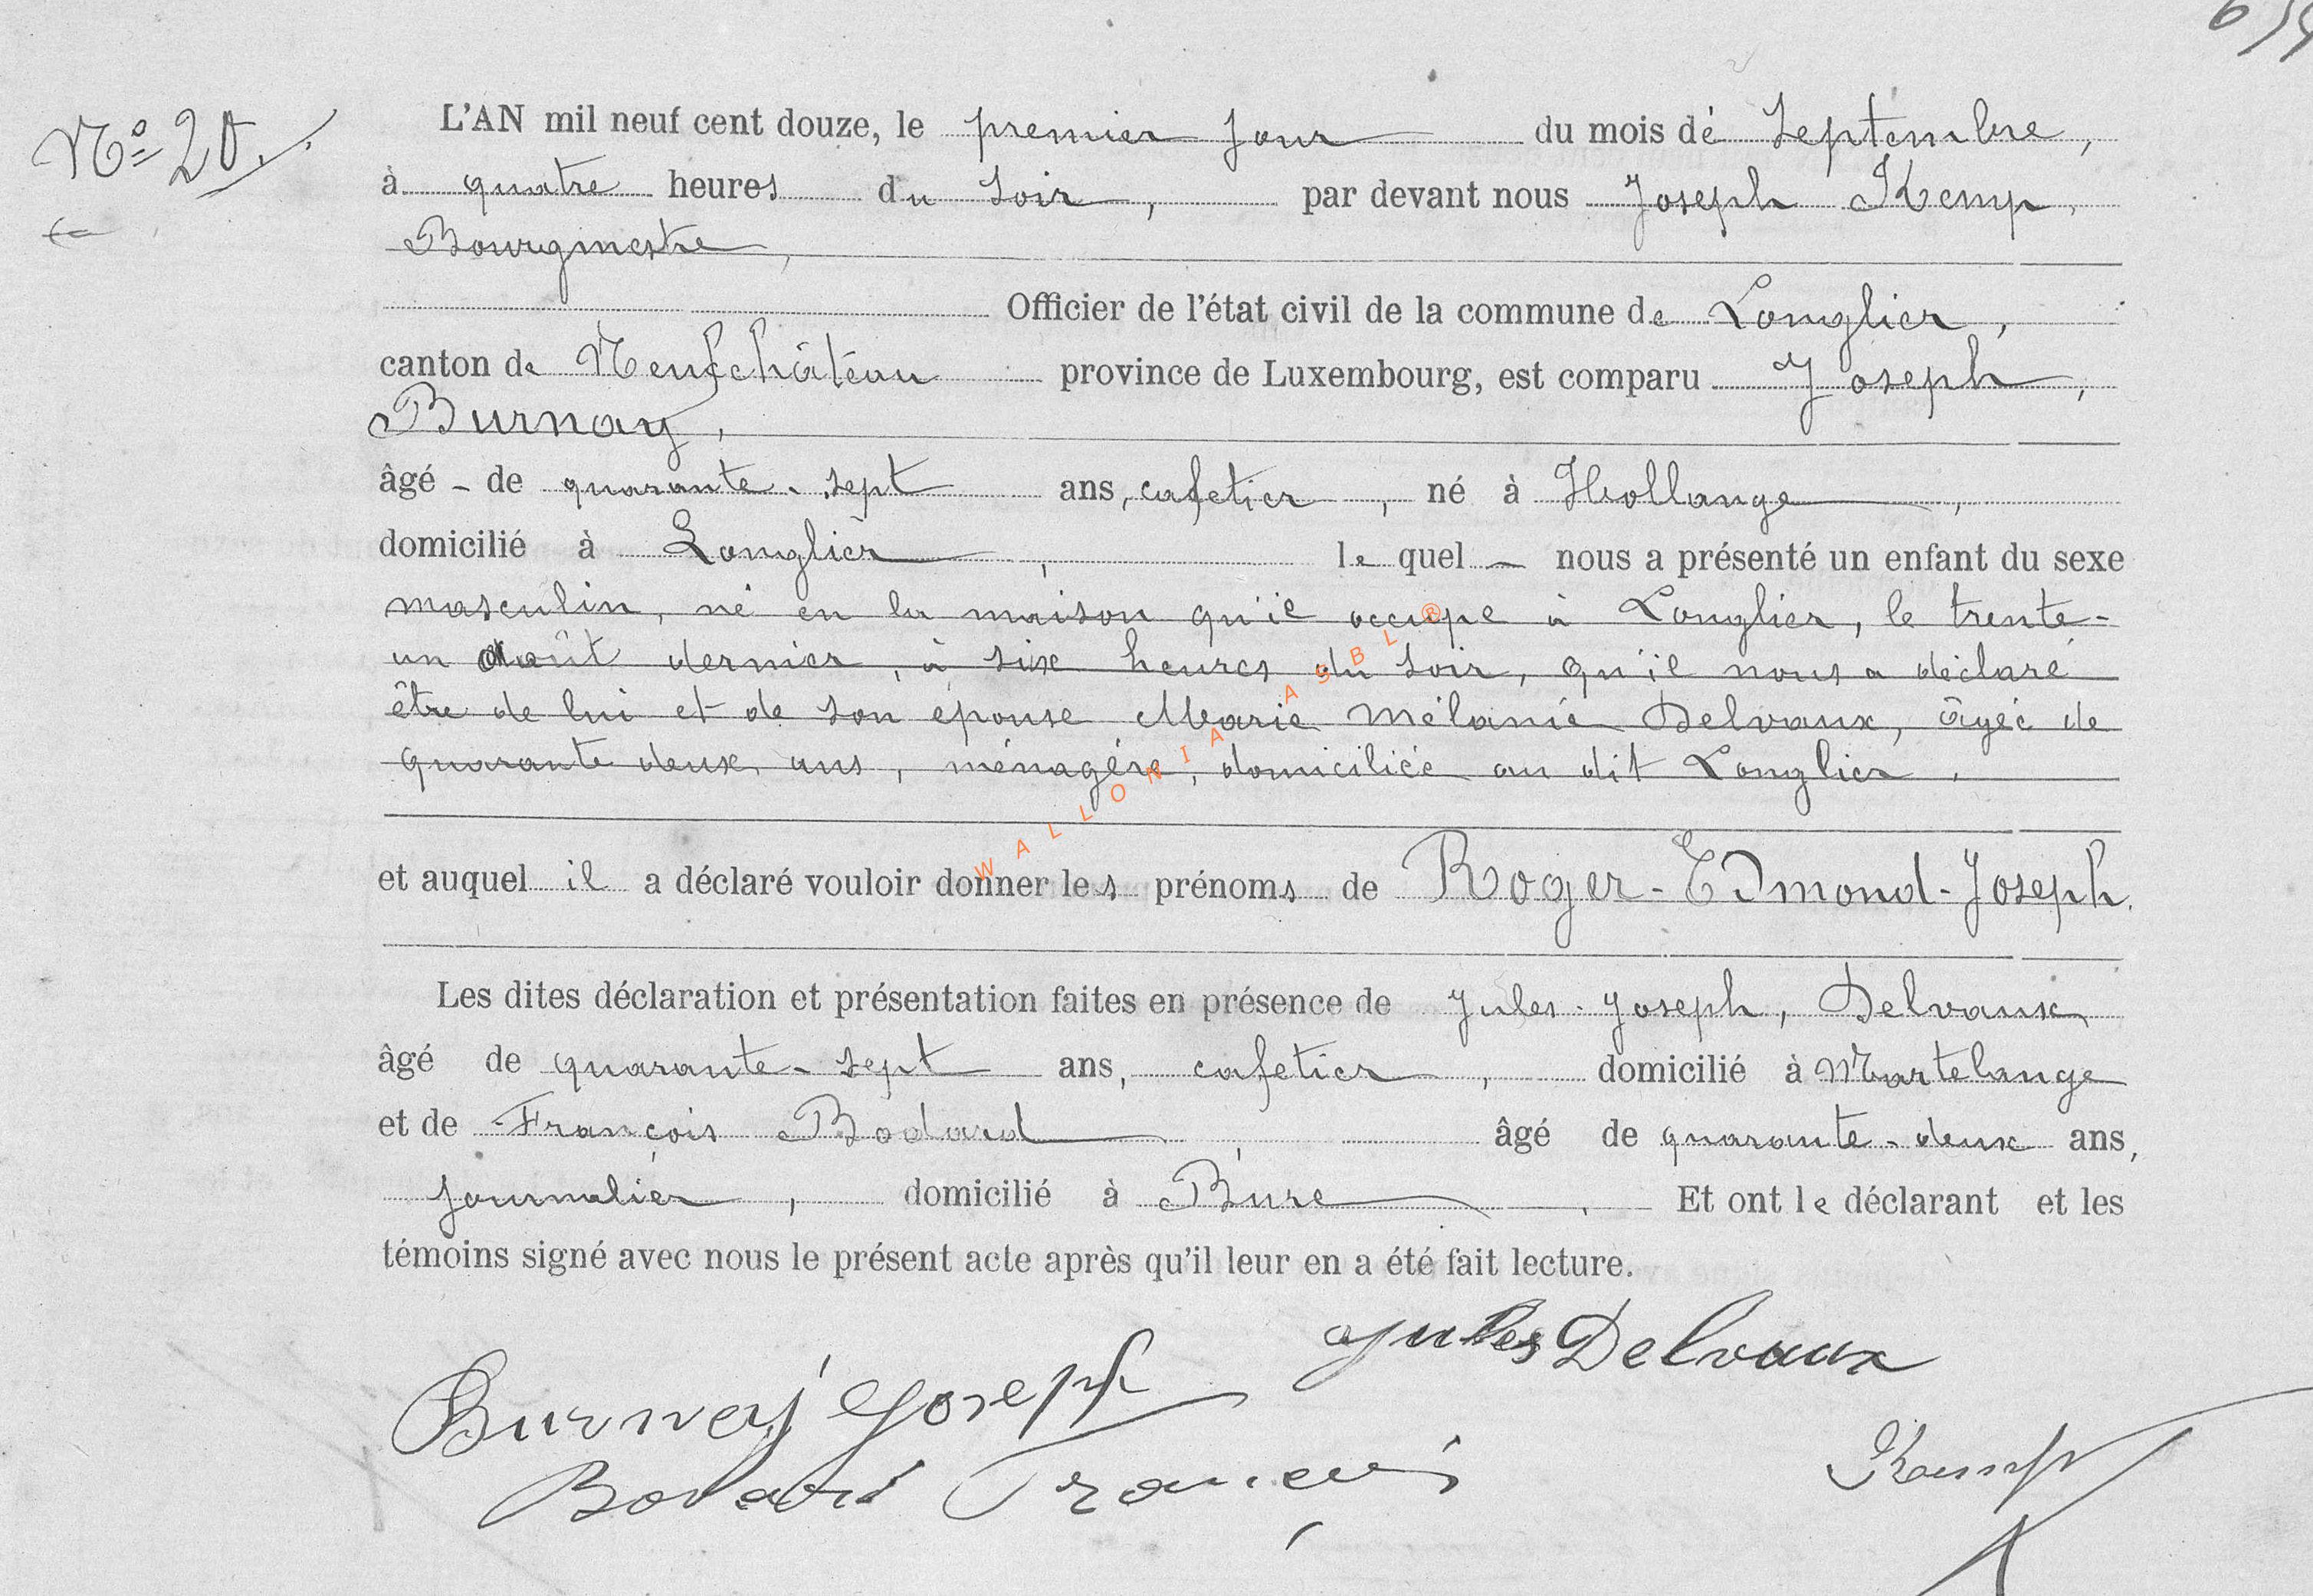 Nº 20.
L'AN mil neuf cent douze, le premier jour du mois de Septembre,
à quatre heures du soir, par devant nous Joseph Kemp,
Bourgmestre,
Officier de l'état civil de la commune de Longlier,
canton de Neufchâteau province de Luxembourg, est comparu Joseph,
Burnay,
âgé - de quarante-sept ans, cafetier, né à Hollange,
domicilié à Longlier, le quel — nous a présenté un enfant du sexe
masculin, né en la maison qu'il occupe à Longlier, le trente-
un août dernier, à six heures du soir, qu'il nous a déclaré
être de lui et de son épouse Marie Mélanie Delvaux, âgée de
quarante deux ans, ménagère, domiciliée au dit Longlier.
et auquel il a déclaré vouloir donner les prénoms de Roger-Edmond-Joseph.
Les dites déclaration et présentation faites en présence de Jules-Joseph, Delvaux
âgé de quarante-sept ans, cafetier, domicilié à Martelange
et de François Bodard, âgé de quarante-deux ans,
journalier, domicilié à Bure. Et ont le déclarant et les
témoins signé avec nous le présent acte après qu'il leur en a été fait lecture.
Jules Delvaux
Burnay Joseph
Bodard François
Kemp
WALLONIA ASBL ®